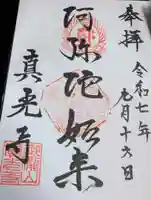 奉拝
令和七年
九月十六日
阿弥陀如来
真光寺